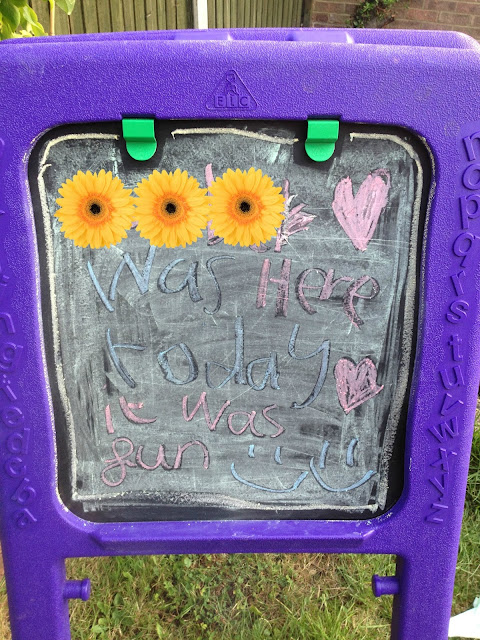 ELC
was Here
today
It was
fun
nopqrstuvwxyz